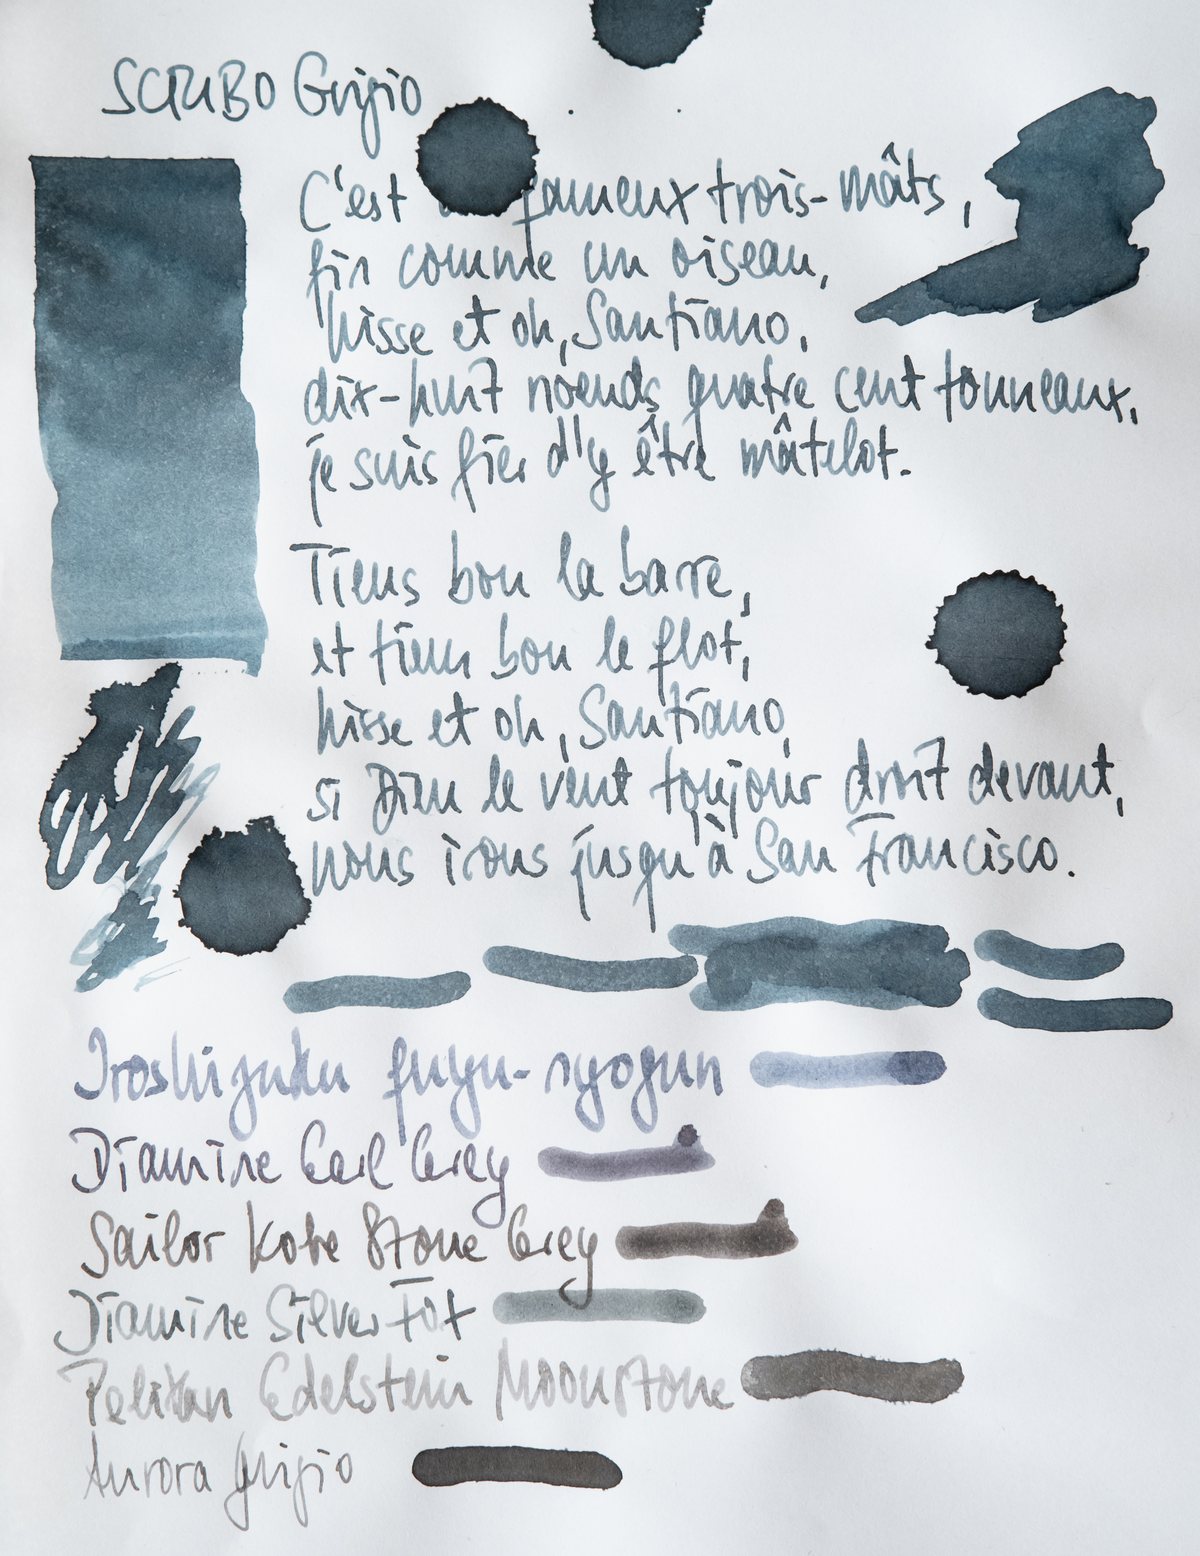 SCRIBO Grigio
C'est fameux trois-mâts,
fin comme un oiseau,
hisse et oh, Santiano,
dix-huit noeuds quatre cent tonneaux,
je suis fier d'y être mâtelot.
Tiens bon la barre,
et tiens bon le flot,
hisse et oh, Santiano,
si Dieu le veut toujour droit devant,
nous irons jusqu'à San Francisco.
Iroshizuku fuyu-syogun
Diamine Earl Grey
Sailor Kobe Stone Grey
Diamine Silver Fox
Pelikan Edelstein Moonstone
Aurora Grigio